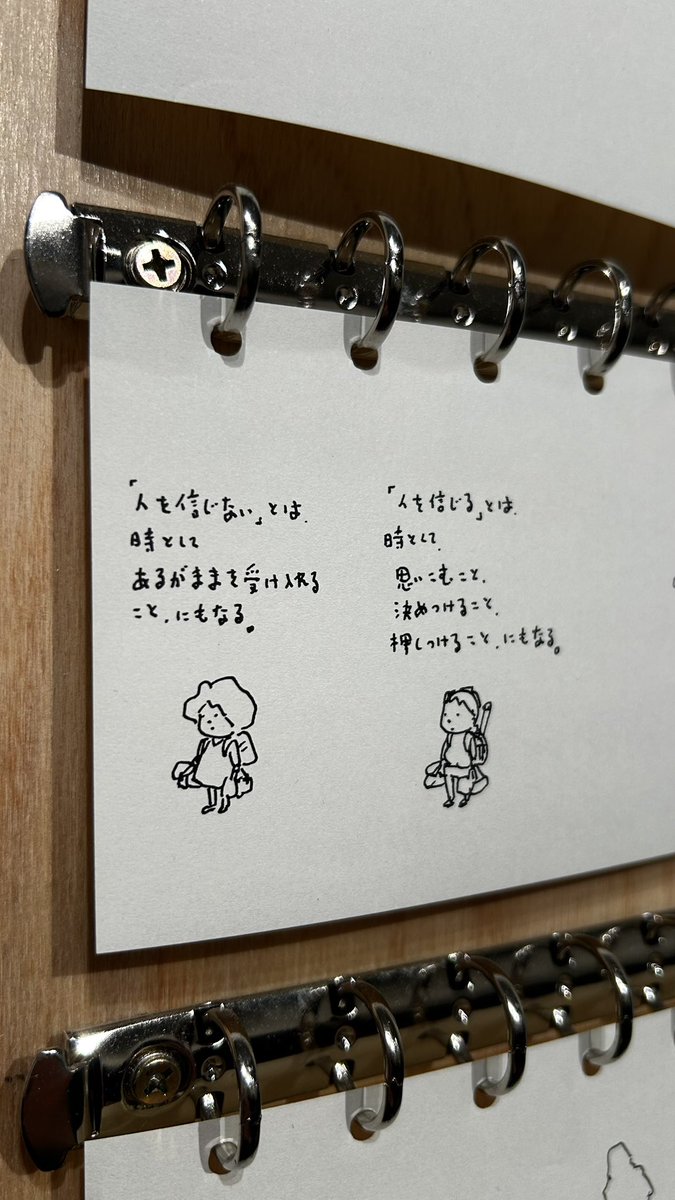 「人を信じない」とは、
時として
あるがままを受け入れる
こと、にもなる。
「人を信じる」とは、
時として、
思いこむこと、
決めつけること、
押しつけること、にもなる。